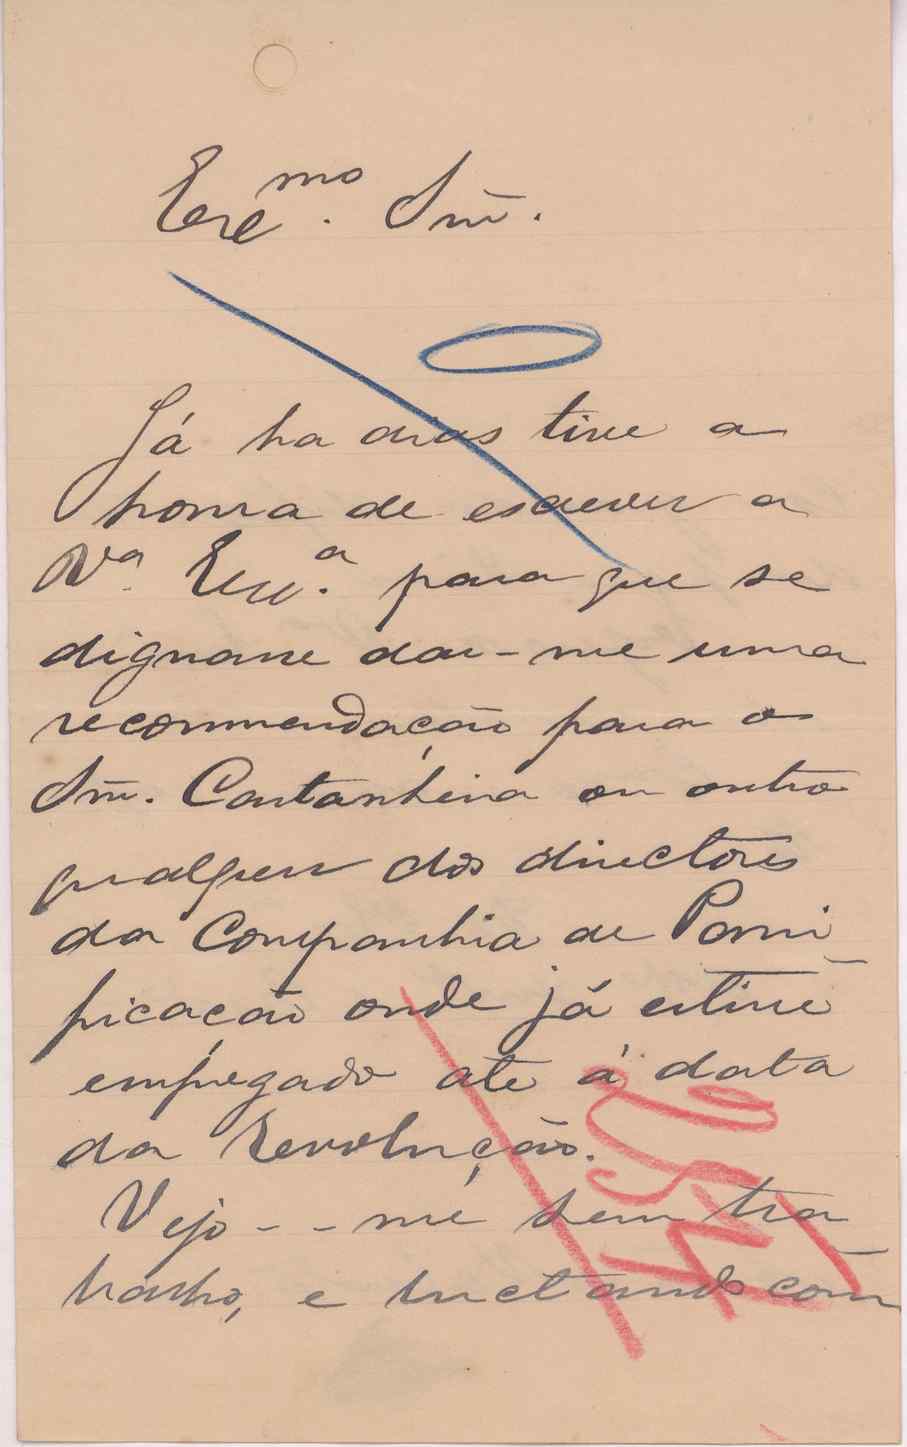 Exc.mo Snr.
Já ha dias tive a
honra de escrever a
V.a Exc.a para que se
dignasse dar-me uma
recommendação para o
Snr. Castanheira ou outro
qualquer dos directores
da Companhia de Pani
ficação onde já estive
empregado até á data
da Revolução.
Vejo-me sem tra
balho, e luctando com